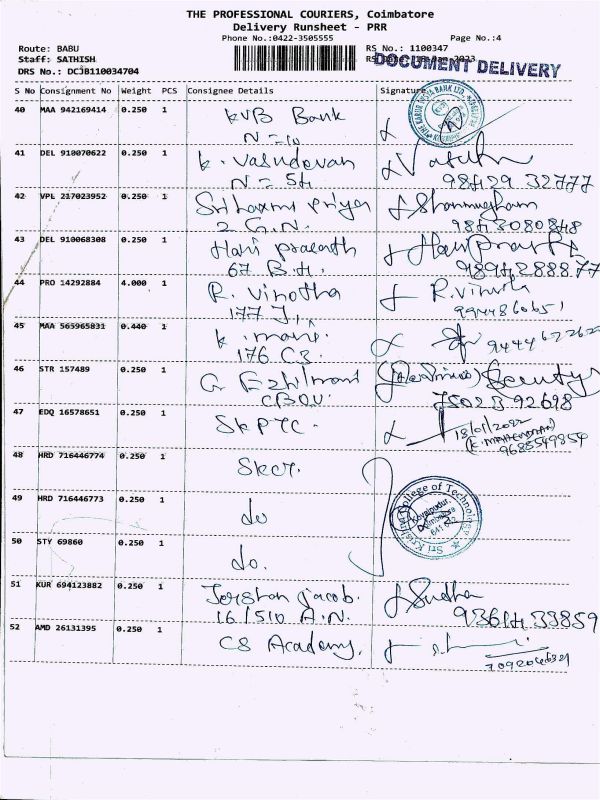 THE PROFESSIONAL COURIERS, Coimbatore
Delivery Runsheet - PRR
Phone No.:0422-3505555
Page No.:4
Route: BABU
RS No.: 1100347
Staff: SATHISH
DOCUMENT DELIVERY
DRS No.: DCJB110034704
S No Consignment No Weight PCS Consignee Details Signature
40 MAA 942169414 0.250 1 KVB Bank
N = 10
41 DEL 910070622 0.250 1 K. Vasudevan
N = 54 98429 32777
42 VPL 217023952 0.250 1 Sri Laxmi Priya Shanmugham
2 G.N. 9843080848
43 DEL 910068308 0.250 1 Hari prasath
67 B.H. 989428887 7
44 PRO 14292884 4.000 1 R. Vinotha R. Vinotha
177 J, 9944860651
45 MAA 565965831 0.440 1 K. mani
176 C3. 9444622622
46 STR 157489 0.250 1 G. Ezhilmani
CBOU 7502392698
47 EDQ 16578651 0.250 1 SKPTC. 18/01/2022
(K. MAHENDRAN)
9685549859
48 HRD 716446774 0.250 1 SKCT.
49 HRD 716446773 0.250 1 do
50 STY 69860 0.250 1 do.
Sri Krishna College of Technology
Kovaipudur,
Coimbatore
641 042
51 KUR 694123882 0.250 1 Jorshan jacob. Sudha
16/510 A.N. 9361433859
52 AMD 26131395 0.250 1 CS Academy.